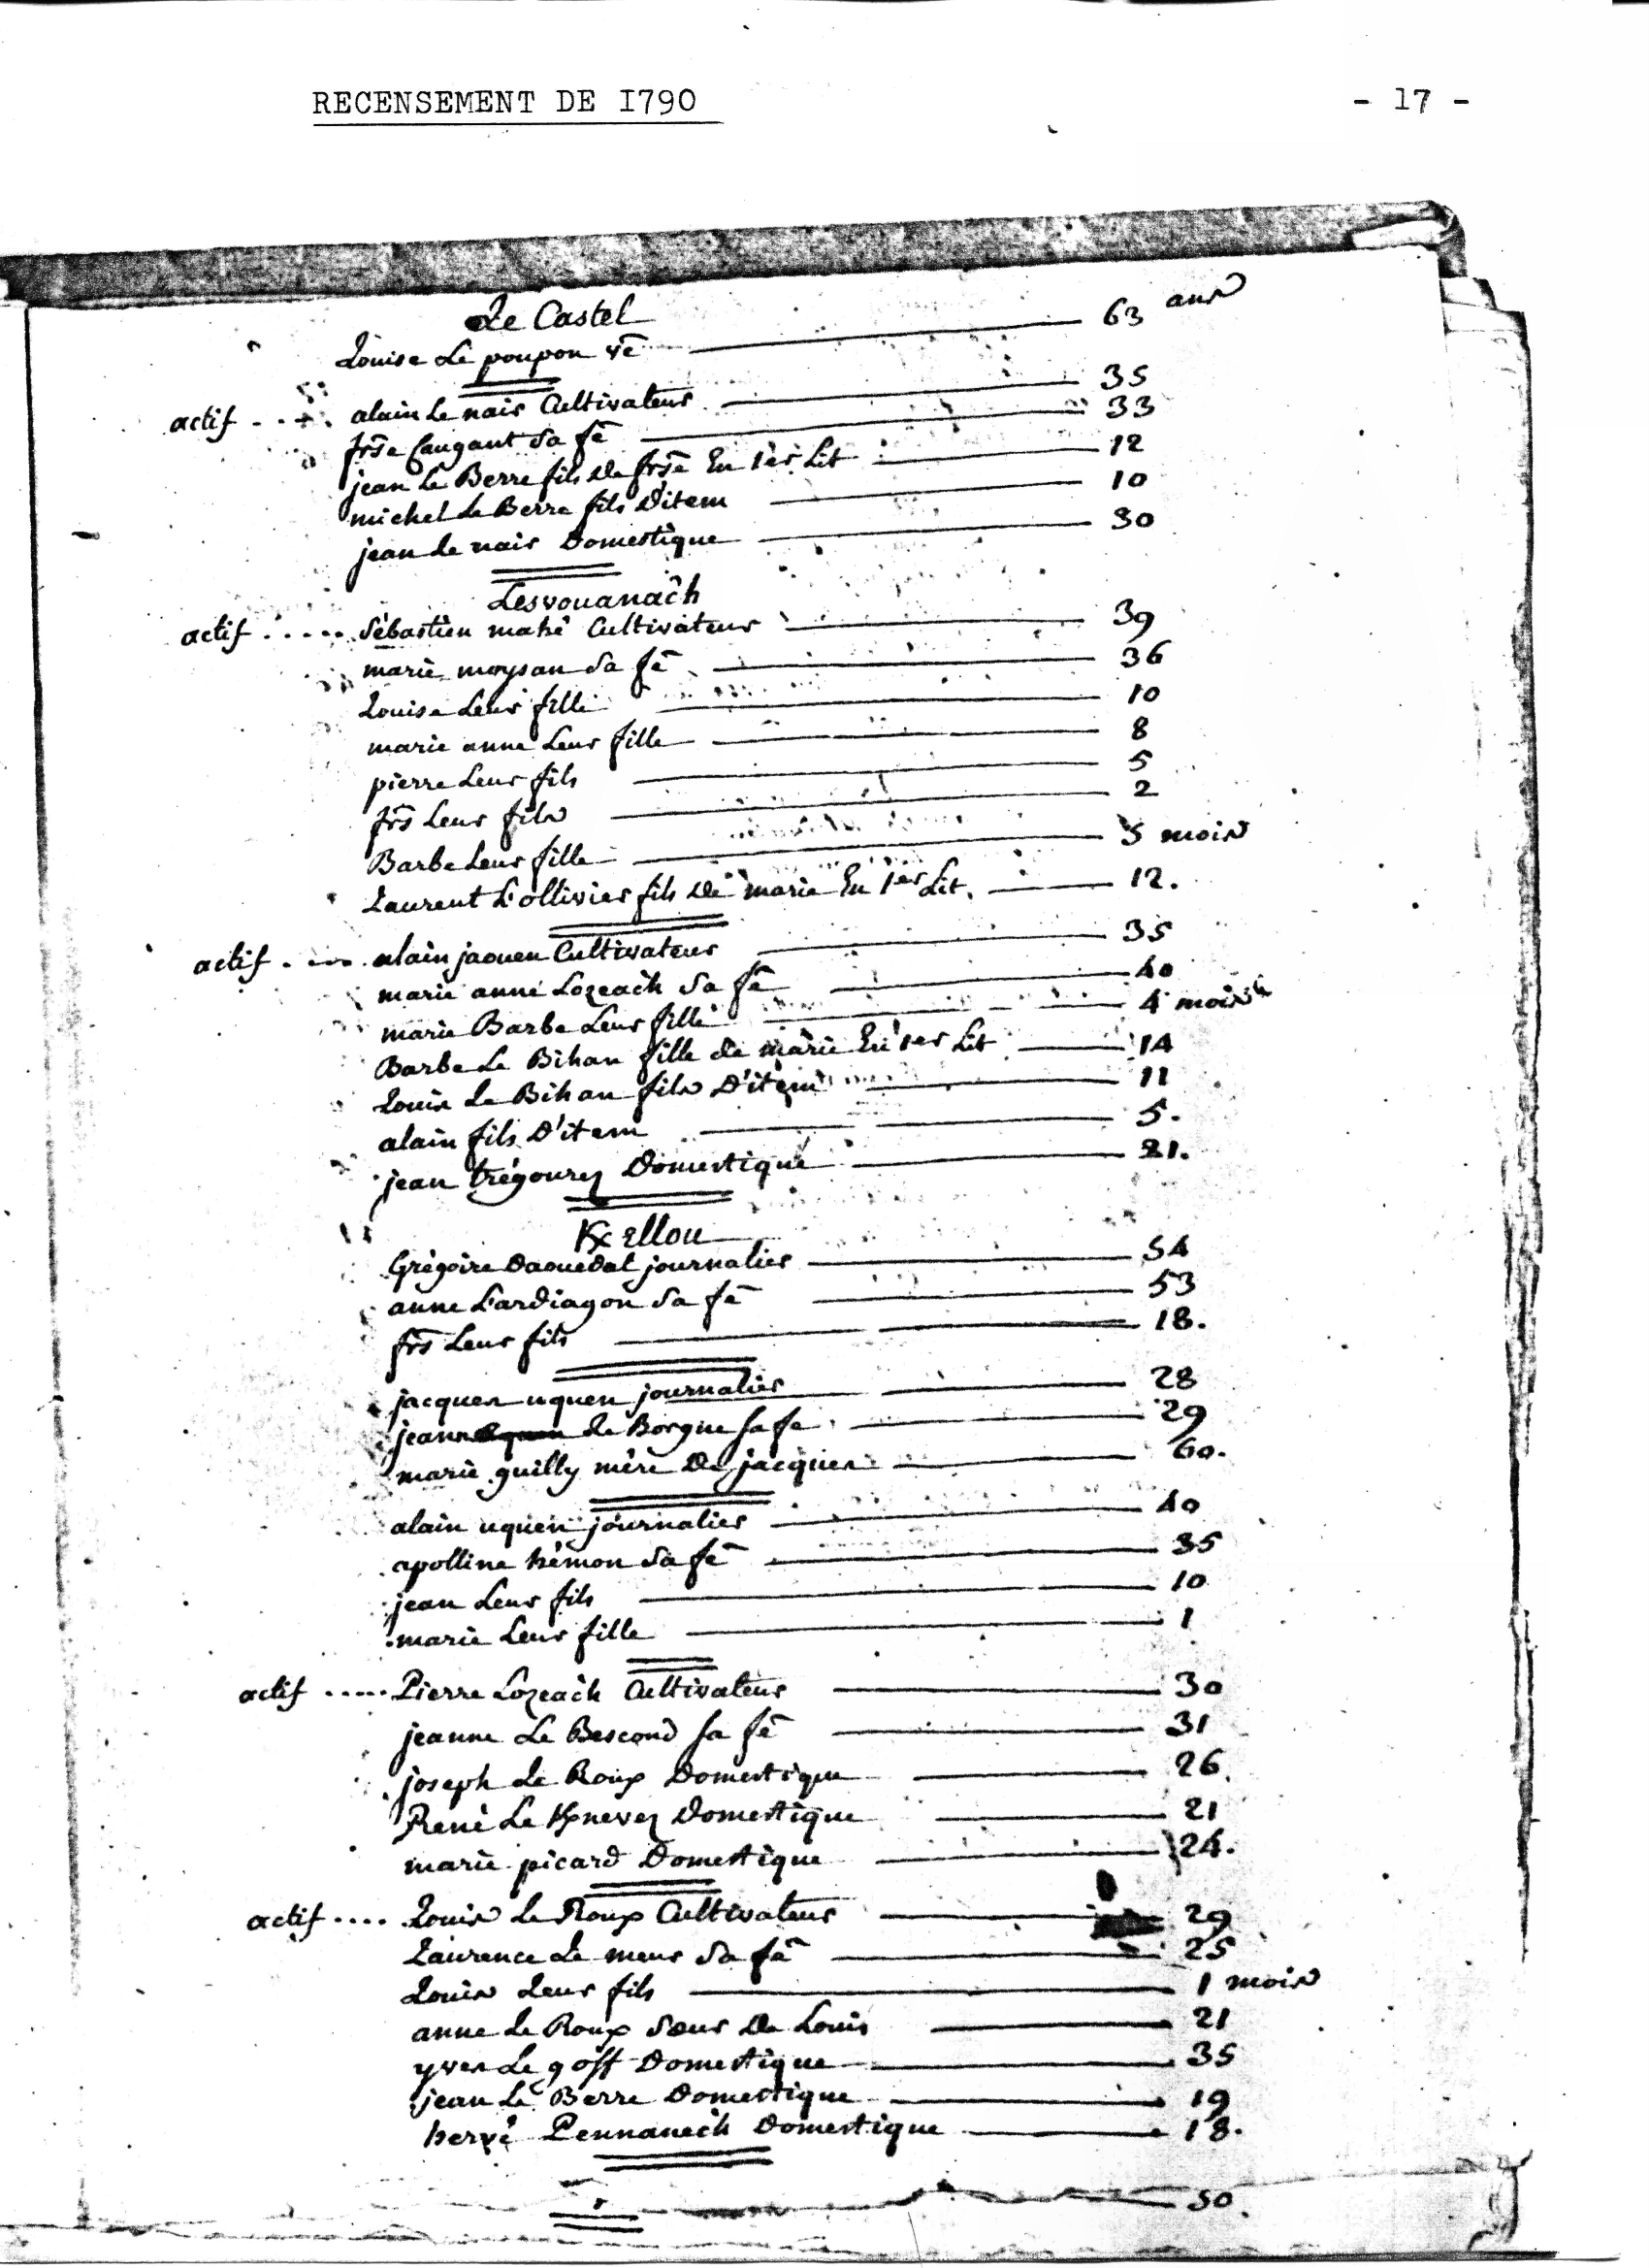 RECENSEMENT DE I790 - 17 -
Le Castel
Louise Le poupon vē 63 ans
actif alain Le nair Cultivateur 35
frs̄e Caugant sa fē 33
jean Le Berre fils de frs̄e En 1er Lit 12
michel Le Berre fils D'item 10
jean Le nair Domestique 30
Lesvouanach
actif Sébastien mahé Cultivateur 39
marie moysan sa fē 36
Louise Leur fille 10
marie anne Leur fille 8
pierre Leur fils 5
frs̄ Leur fils 2
Barbe Leur fille 5 mois
Laurent L'ollivier fils de marie En 1er Lit. 12.
actif alain jaouen Cultivateur 35
marie anne Lozeach sa fē 40
marie Barbe Leur fille 4 mois
Barbe Le Bihan fille de marie En 1er Lit 14
Louis Le Bihan fils D'item 11
alain fils D'item 5.
jean trégourez Domestique 21.
Kellou
Grégoire Daouedal journalier 54
anne L'ardiagon sa fē 53
frs̄ Leur fils 18.
jacques uguen journalier 28
jeanne Le Borgne sa fe 29
marie guilly mère De jacques 60.
alain uguen journalier 40
apolline hémon sa fē 35
jean Leur fils 10
marie Leur fille 1
actif Pierre Lozeach Cultivateur 30
jeanne Le Bescond sa fē 31
joseph Le Roux Domestique 26
René Le Knevez Domestique 21
marie picard Domestique 24.
actif Louis Le Roux Cultivateur 29
Laurence Le meur sa fē 25
Louis Leur fils 1 mois
anne Le Roux sœur De Louis 21
yves Le goff Domestique 35
jean Le Berre Domestique 19
hervé Pennanech Domestique 18.
50